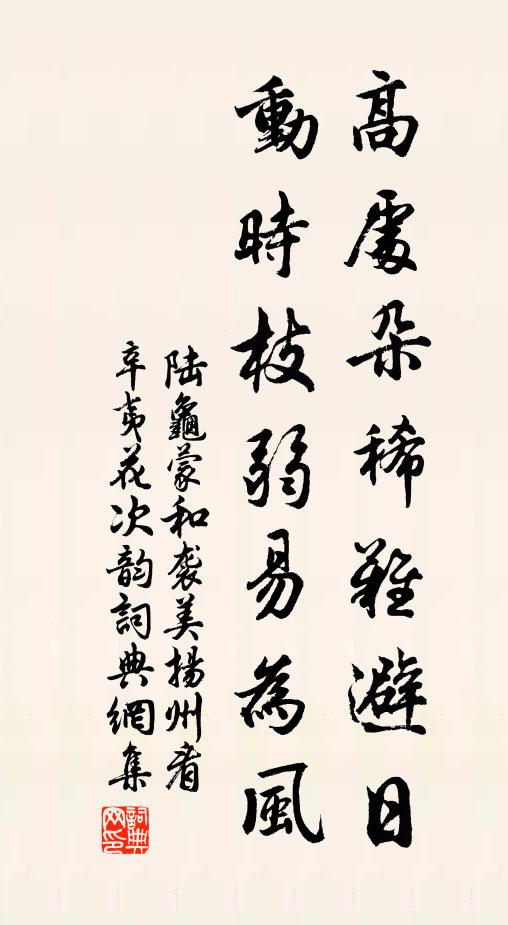 高處朵稀難避日
動時枝弱易為風
陸龜蒙和襲美揚州看
辛夷花次韵詞典網集
詞典
网印